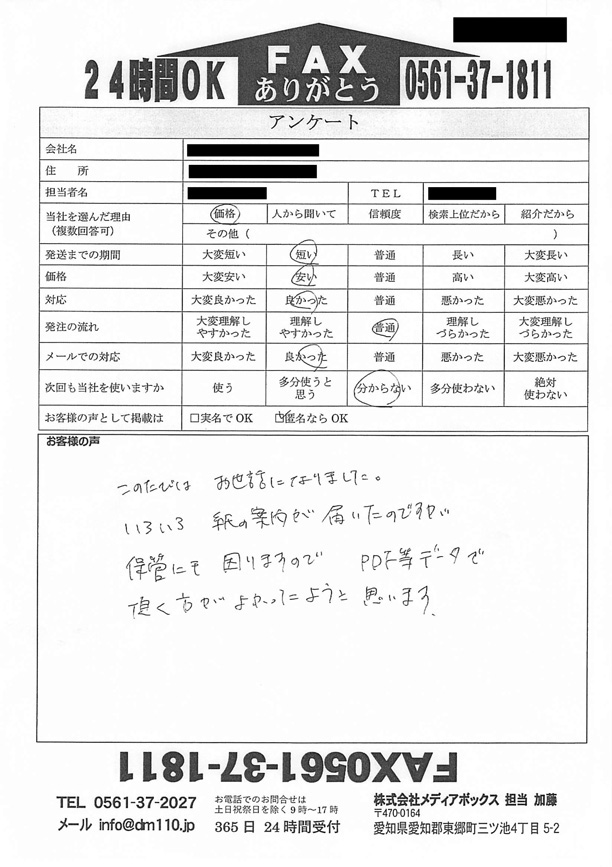 24時間OK
FAX
ありがとう
0561-37-1811
アンケート
会社名
住 所
担当者名 TEL
当社を選んだ理由 (複数回答可) 価格 人から聞いて 信頼度 検索上位だから 紹介だから
その他 ( )
発送までの期間 大変短い 短い 普通 長い 大変長い
価格 大変安い 安い 普通 高い 大変高い
対応 大変良かった 良かった 普通 悪かった 大変悪かった
発注の流れ 大変理解しやすかった 理解しやすかった 普通 理解しづらかった 大変理解しづらかった
メールでの対応 大変良かった 良かった 普通 悪かった 大変悪かった
次回も当社を使いますか 使う 多分使うと思う 分からない 多分使わない 絶対使わない
お客様の声として掲載は □実名でOK ☑匿名ならOK
お客様の声
このたびは お世話になりました。
いろいろ 紙の案内が 届いたのですが
保管にも 困りますので PDF等データで
頂く方が よかったように 思います.
FAX0561-37-1811
TEL 0561-37-2027
メール info@dm110.jp
お電話でのお問合せは
土日祝祭日を除く9時〜17時
365日 24時間受付
株式会社メディアボックス 担当 加藤
〒470-0164
愛知県愛知郡東郷町三ツ池4丁目 5-2